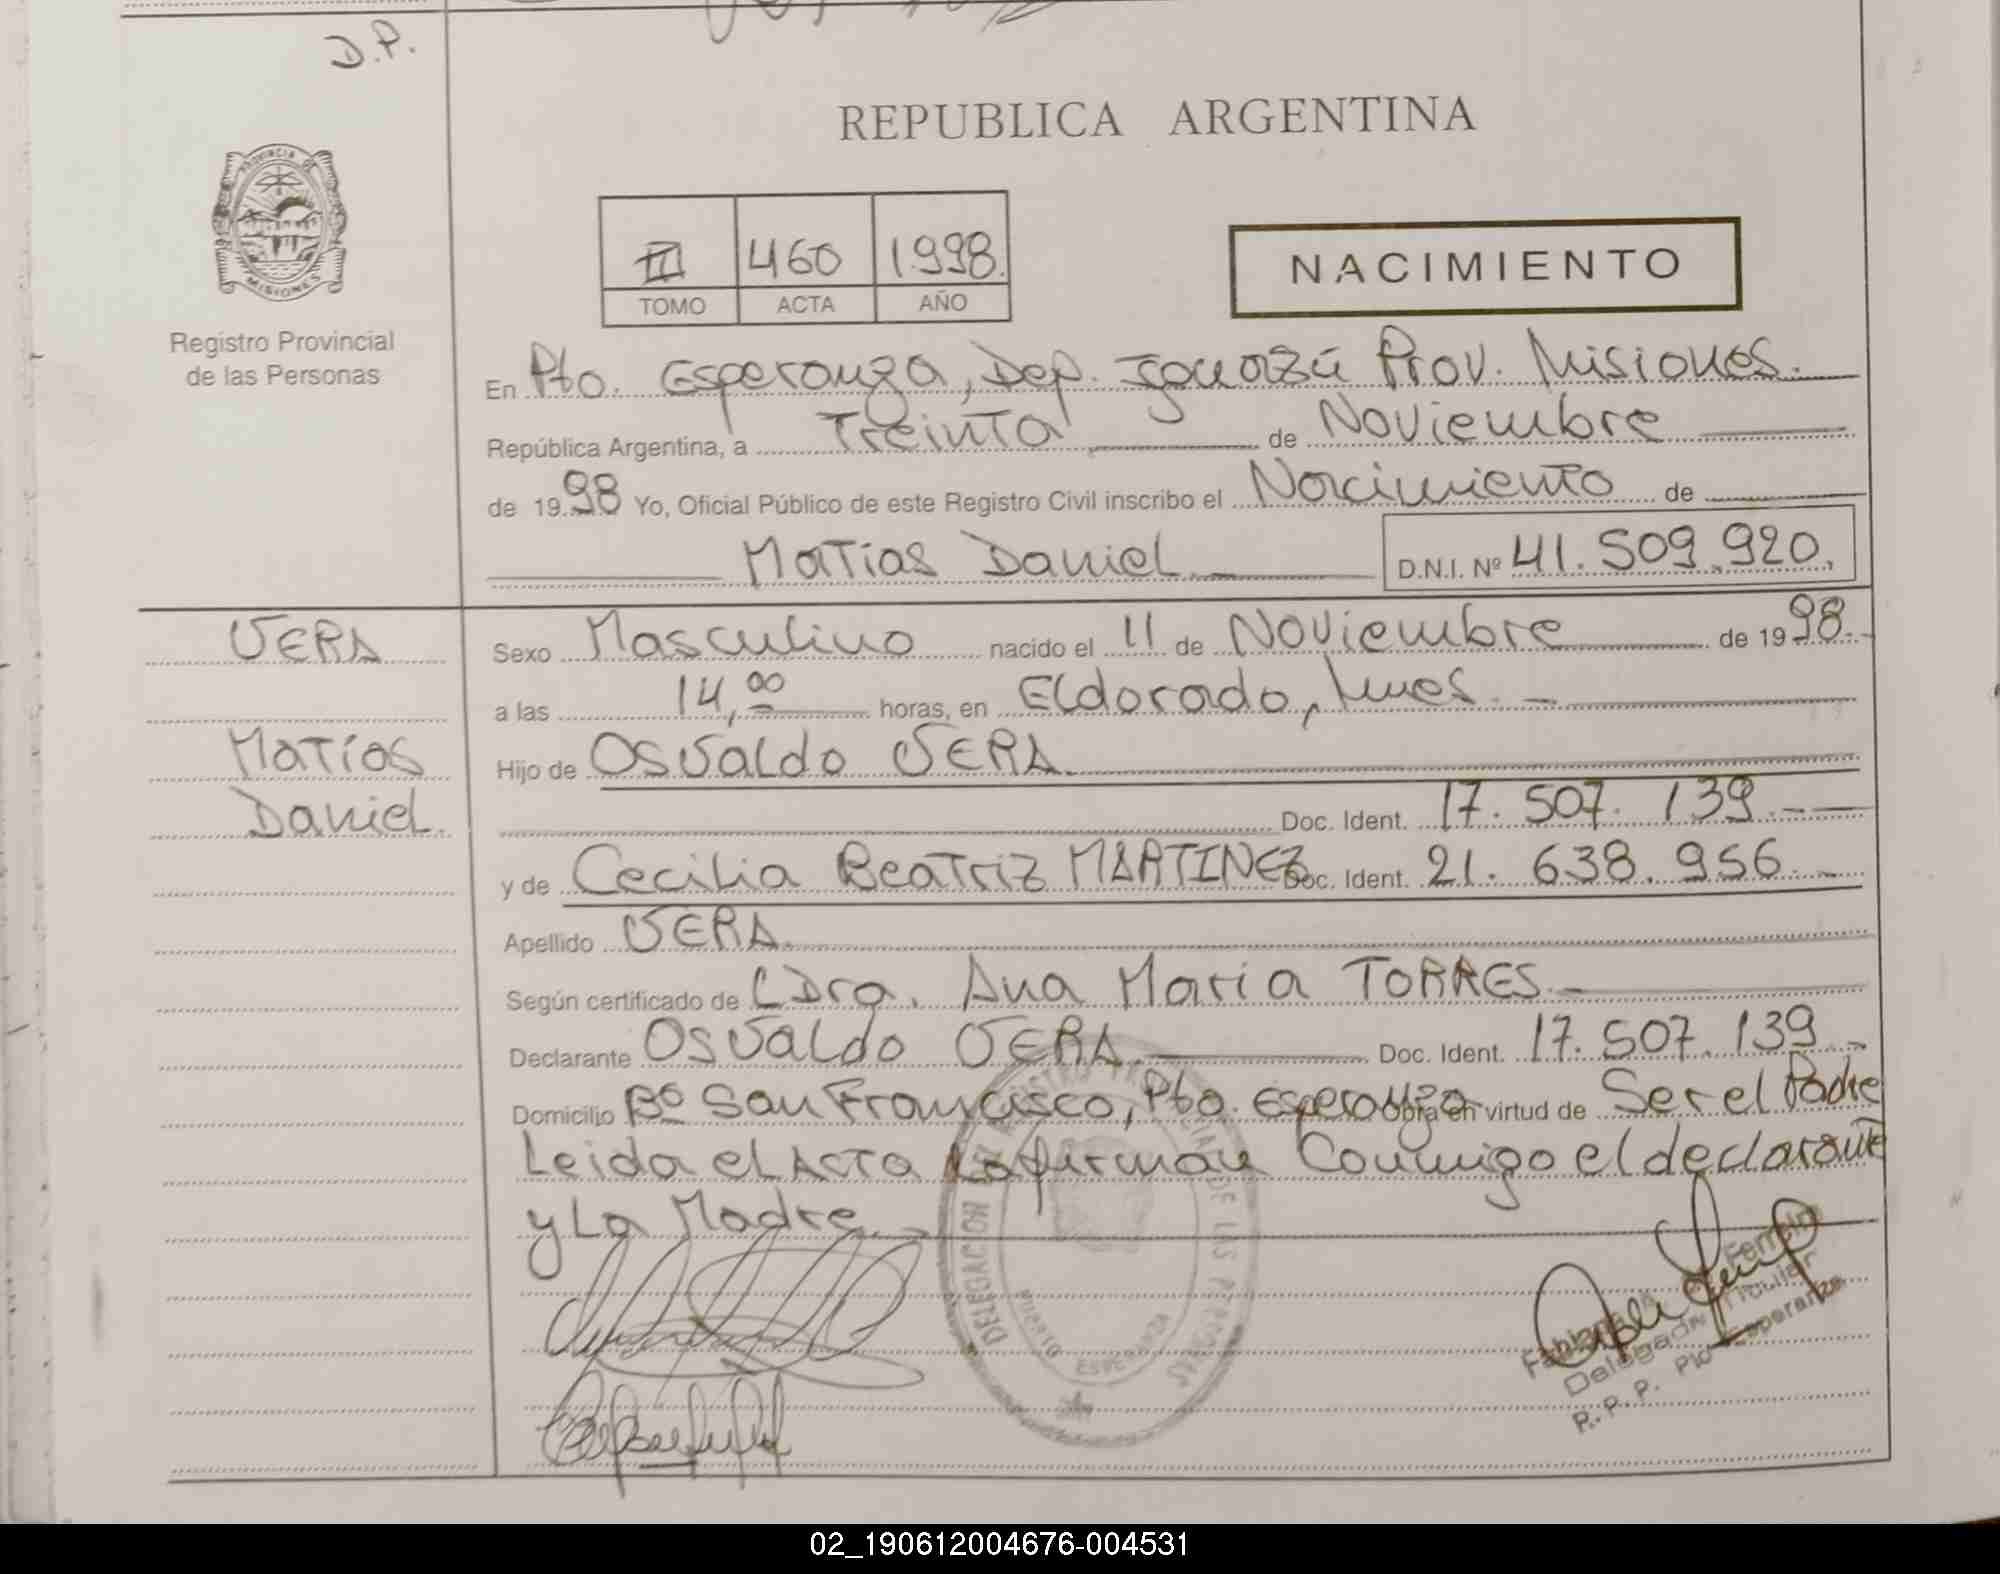 D.P.
REPUBLICA ARGENTINA
PROVINCIA DE
MISIONES
Registro Provincial
de las Personas
III 460 1998.
TOMO ACTA AÑO
NACIMIENTO
En Pto. Esperanza, Dep. Iguazú Prov. Misiones.
República Argentina, a Treinta de Noviembre
de 1998 Yo, Oficial Público de este Registro Civil inscribo el Nacimiento de
Matías Daniel D.N.I. Nº 41.509.920.
VERA
Sexo Masculino nacido el 11 de Noviembre de 1998.
a las 14,00 horas, en Eldorado, Mnes.
Matías
Hijo de Osvaldo VERA.
Daniel.
Doc. Ident. 17.507.139.
y de Cecilia Beatriz MARTINEZ Doc. Ident. 21.638.956.
Apellido VERA.
Según certificado de Dra. Ana Maria TORRES.
Declarante Osvaldo VERA. Doc. Ident. 17.507.139
Domicilio Bº San Francisco, Pto. Esperanza Obra en virtud de Ser el Padre
Leida el Acta La firman Conmigo el declarante
y La Madre.
DELEGACION DEL REGISTRO PROVINCIAL DE LAS PERSONAS
PUERTO ESPERANZA
Ferreiro
Delegado Titular
R.P.P. Pto Esperanza
02_190612004676-004531